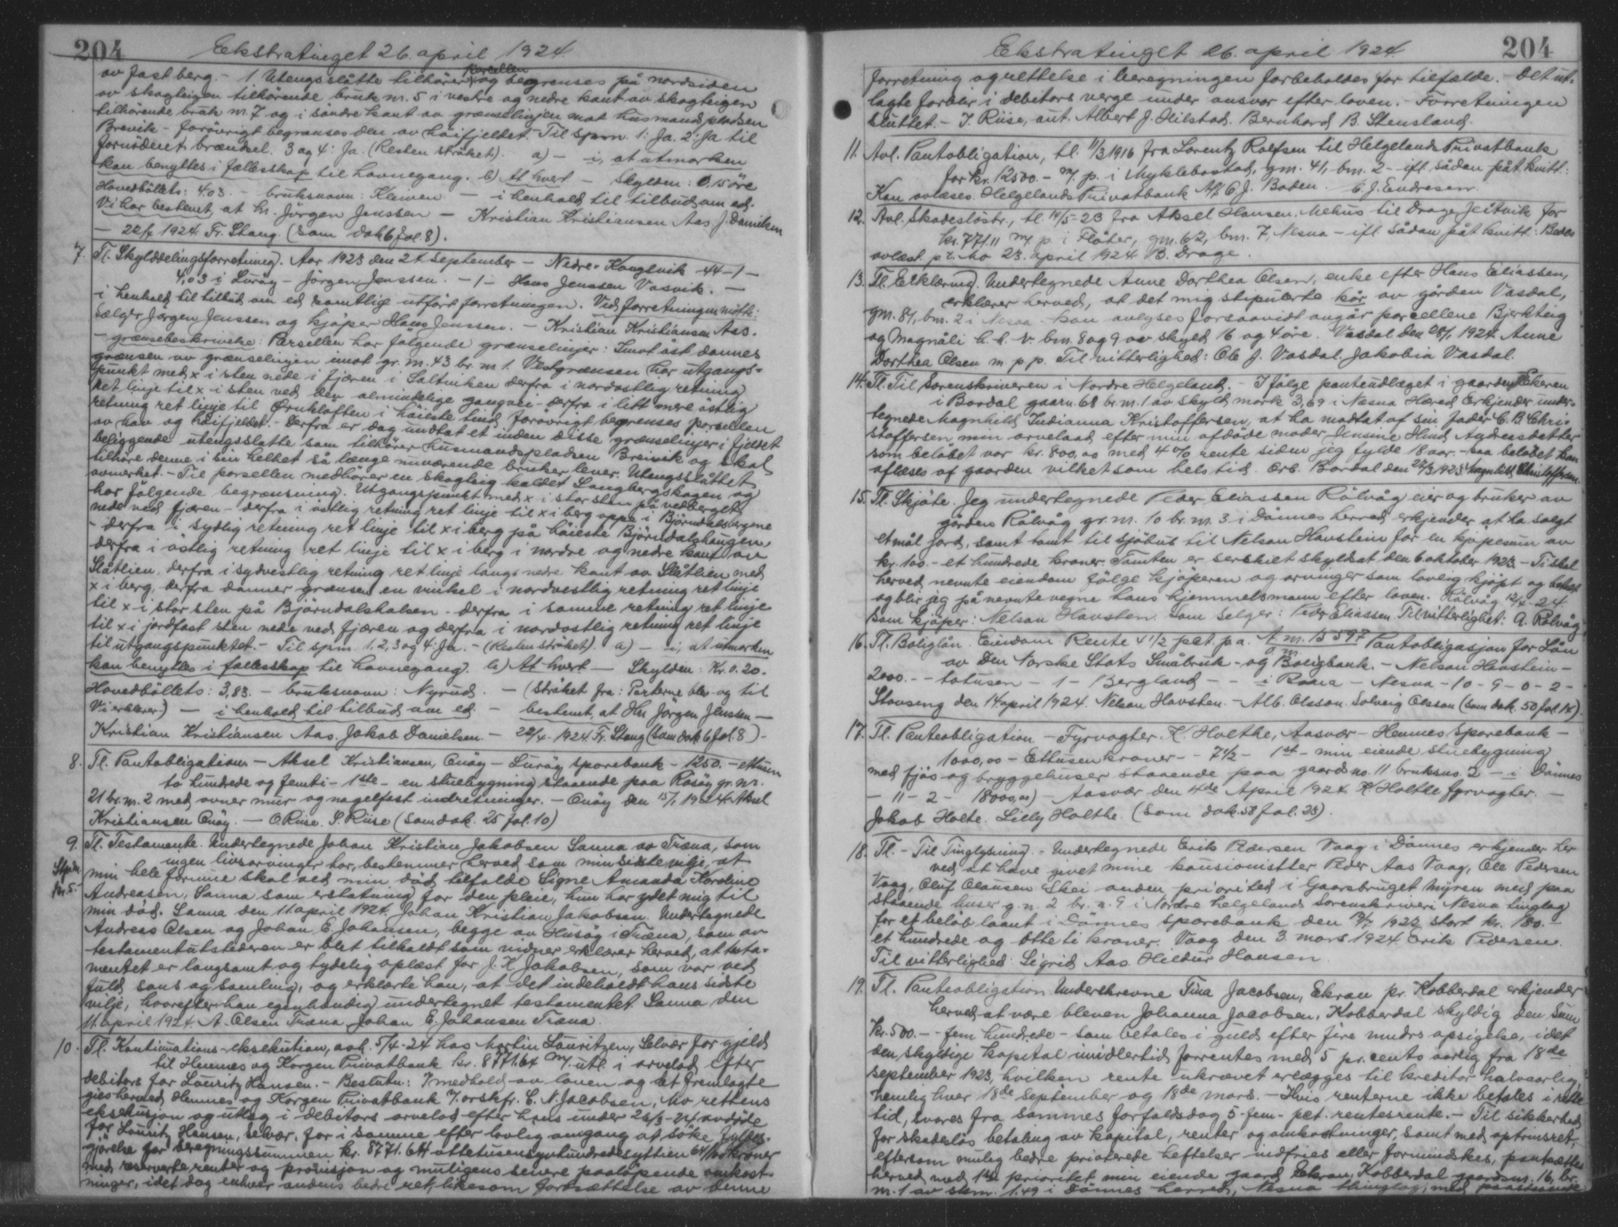 204 Ekstratinget 26. april 1924
av fast berg. - 1 Utengsslåtte tilhører parsellen og begrænses på nordsiden
av skogteigen tilhörende bruk nr. 5 i vestre og nedre kant av skogteigen
tilhörende bruk nr. 7 og i söndre kant av grænselinjen mot husmandspladsen
Breivik - forövrigt begrænses den av höifjeldet. Til spm. 1: Ja. 2: Ja til
fornödent brændsel. 3 og 4: Ja. (Resten ströket). a) - i, at utmarken
kan benyttes i fællesskap til havnegang. b) At hvert - Skylden: 0,15 öre
Hovedbölets: 4,03 - bruksnavn: Kleiven - i henhold til tilbud om ed.
Vi har bestemt, at hr. Jörgen Jenssen - Kristian Kristiansen Aas J. Danielsen
- 22/4 1924 Fr. Stang (som dok 6 fol. 8).
7. Tl. Skylddelingsforretning. Aar 1923 den 21 september - Nedre Konglevik - 44 - 1 -
4,03 i Luröy - Jörgen Jenssen. - 1 - Hans Jenssen Vasvik. -
i henhold til tilbud om ed samtlige utförd forretningen). Ved forretningen mötte:
Sælger Jörgen Jenssen og kjöper Hans Jenssen. - Kristian Kristiansen Aas.
- grænsebeskrivelse: Parsellen har følgende grænselinjer: Imot öst dannes
grænsen av grænselinjen imot gr. nr. 43 br. nr. 1. Vestgrænsen har utgangs-
punkt med x i sten nede i fjæren i Saltviken derfra i nordostlig retning
ret linje til x i sten ved den almindelige gangvei - derfra i litt mere östlig
retning ret linje til Örnkloften i höieste tind, forövrigt begrænses parsellen
av hav og höifjellet. - Derfra er dog undtat et inden disse grænselinjer i fjeldet
beliggende utengsslatte som tilhörer husmandspladsen Breivik og skal
tilhöre denne i sin helhet så længe nuværende bruker lever. Utengsslåttet
avmerket. - Til parsellen medhörer en skogteig kaldet Langbergskogen og
har følgende begrænsning. Utgangspunkt med x i stor sten på vedberget
nede ved fjæren - derfra i östlig retning ret linje til x i berg oppe i Björndalsbergene
- derfra i sydlig retning ret linje til x i berg på höieste Björndalshaugen
derfra i östlig retning ret linje til x i berg i nordre og nedre kant av
Slåtlien derfra i sydvestlig retning ret linje langs nedre kant av Slåtlien med
x i berg, derfra danner grænsen en vinkel i nordvestlig retning ret linje
til x i stor sten på Björndalshalsen - derfra i samme retning ret linje
til x i jordfast sten nede ved fjæren og derfra i nordostlig retning ret linje
til utgangspunktet. - Til spm. 1, 2, 3 og 4: Ja. - (Resten ströket). a) - i, at utmarken
kan benyttes i fællesskap til havnegang. b) At hvert - Skylden: Kr. 0.20.
Hovedböllets: 3,83. - bruksnavn: Nyrud. - (Ströket fra: Parterne blev og til
Vi erklærer) - i henhold til tilbud om ed - bestemt, at Hr. Jörgen Jenssen -
Kristian Kristiansen Aas. Jakob Danielsen - 22/4. 1924 Fr. Stang (som dok 6 fol 8) -
8. Tl. Pantobligation - Aksel Kristiansen, Onöy - Luröy sparebank - 1250. - ettusen
to hundrede og femti - 1ste - en stuebygning staaende paa Rösöy gr. nr.
21 br. nr. 2 med ovner mur og nagelfest indretninger. - Onöy den 15/1 1924 Aksel
Kristiansen Onöy. - O. Riise. P. Riise (som dok. 25 fol. 10)
9. Tl. Testamente. Undertegnede Johan Kristian Jakobsen Sanna av Træna, som
ingen livsarvinger har, bestemmer herved som min sidste vilje, at
min hele formue skal ved min död tilfalde Signe Amanda Karoline
Andreasen, Sanna som erstatning for den pleie, hun har ydet mig til
min död. Sanna den 11 april 1924. Johan Kristian Jakobsen. Undertegnede
Andreas Olsen og Johan E. Johansen, begge av Husöy i Træna, som av
testamentutstederen er blet tilkaldt som vidner erklærer herved, at testa-
mentet er langsomt og tydelig oplæst for J. K. Jakobsen, som var ved
fuld sans og samling, og erklærte han, at det indeholdt hans sidste
vilje, hvorefter han egenhændig undertegnet testamentet Sanna den
11. april 1924. A. Olsen Træna Johan E. Johansen Træna.
10. Tl. Kontinuations-eksekution, avh. 5/4-24 hos Martin Lauritzen, Selvær for gjeld
til Hemnes og Korgen Privatbank kr. 8771.64 m/. utl. i arvelod efter
debitors far Lauritz Hansen. - Beslutn: I medhold av loven og det fremlagte
gies herved Hemnes og Korgen Privatbank v. orskfr. C. N. Jacobsen, Mo rettens
eksekusjon og utlæg i debitors arvelod efter hans under 26/3-24 avdöde
far Lauritz Hansen, Selvær, for i samme efter lovlig omgang at söke fyldest-
gjörelse for dragningssummen kr. 8771.64 ottetusensyvhundredesyttien 64/100 kroner
med reserverte renter og provisjon og muligens senere paalöpende omkost-
ninger, idet dog enhver andens bedre ret, likesom fortsættelse av denne
Ekstratinget 26. april 1924 204
forretning og rettelse i beregningen forbeholdes for tilfælde. - Det ut-
lagte forblir i debitors verge under ansvar efter loven. - Forretningen
sluttet. - J. Riise, aut. Albert J. Hilstad. Bernhard B. Stensland.
11. Avl. Pantobligation, tl. 11/3 1916 fra Lorentz Rolfsen til Helgelands Privatbank
for kr. 12500. - m/. p. i Myklebostad, gnr. 41, bnr. 2 - ifl. sådan påt. kvitt:
Kan avlæses. Helgelands Privatbank A/S C. J. Boden. C. J. Endresen.
12. Avl. Skadeslöstr., tl. 14/5-23 fra Aksel Hansen, Mehus til Drage Jeitvik for
kr. 771.11 m/. p. i Flöter, gnr. 62, bnr. 7, Nesna - ifl. sådan påt. kvitt: Bedes
avlæst pr. Mo 23. april 1924 B. Drage.
13. Tl. Erklæring. Undertegnede Anne Dorthea Olsen, enke efter Hans Eliassen,
erklærer herved, at det mig stipulerte kår av gården Vasdal,
gnr. 81, bnr. 2 i Nesna kan avlyses forsaavidt angår parcellene Bjerkteig
og Magnåli h. h. v. bnr. 8 og 9 av skyld 16 og 4 öre. Vasdal den 28/1 1924. Anne
Dorthea Olsen m. p. p. Til vitterlighed: Ole J. Vasdal, Jakobin Vasdal.
14. Tl. Til Sorenskriveren i Nordre Helgeland. - I fölge panteudlæget i gaarden Ekeren
i Bardal gaarn. 68 br. nr. 1 av skyld mark 3,69 i Nesna Hered Erkjender under-
tegnede Magnhild Indianna Kristoffersen, at ha modtat af sin fader C. B. Chris-
stoffersen min arvelaad efter min afdöde moder Jensine Hind Andreasdatter
som belöbet var kr. 800,00 med 4 % rente siden jeg fylde 18 aar. - saa belöbet kan
aflæses af gaarden vilket som hels. tid. Ærb. Bardal den 26/3 1923. Magnhild Christoffersen.
15. Tl. Skjöte. Jeg undertegnede Peder Eliassen Rölvåg eier og bruker av
gården Rölvåg gr. nr. 10 br. nr. 3 i Dönnes herred erkjender at ha solgt
et mål jord, samt tomt til sjöhus til Nelson Havstein for en kjøpesum av
kr. 100. - et hundrede kroner. Tomten er serskilt skyldsat den 6 oktober 1923. - Ti skal
herved nevnte eiendom fölge kjöperen og arvinger som lovlig kjöpt og betalt
og blir jeg på nevnte vegne hans hjemmelsmann efter loven. Rölvåg 12/4-24.
Som kjöper: Nelson Havsten. Som Selger: Peder Eliassen. Til vitterlighet: A. Rölvåg
16. Tl. Boliglån. Eiendom Rente 4 1/2 pct. p. a. A nr. 15597 Pantobligasjon for Lån
av Den Norske Stats Småbruk- og Boligbank. - Nelson Havstein -
2000. - - totusen - 1 - Bergland - - i Rana - Nesna - 10 - 9 - 0 - 2 -
Stovseng den 14 april 1924. Nelson Havsten. - Alb. Olsson. Solveig Olsson (som dok. 50 fol. 18).
17. Tl. Panteobligation - Fyrvogter K. Holthe, Aasvær - Hemnes Sparebank -
1000,00 - Ettusen kroner - 7 1/2 - 1st - min eiende stuebygning
med fjös og bryggehuser staaende paa gaardsno. 11 bruksno. 2 - i Dönnes
- 11 - 2 - 18000,00) - Aasvær den 4de April 1924 K. Holthe fyrvogter. -
Jakob Holte. Lilly Holthe. (som dok. 58 fol. 23).
18. Tl. - Til Tinglysning. - Undertegnede Erik Pedersen Vaag i Dönnes erkjender her-
ved at have givet mine kausionistter Peder Aas Vaag, Ole Pedersen
Vaag, Oluf Olausen Skei anden prioritet i Gaarsbruget Myren med paa
staaende huser g. n. 2 br. n. 9 i Nordre helgelands sorenskriveri Nesna tinglag
for et belöb laant i Dönnes Sparebank den 13/7 1922 stort kr. 180. -
et hundrede og otte ti kroner. Vaag den 3 mars 1924 Erik Pedersen.
Til vitterlighed: Sigrid Aas Hildur Hansen
19. Tl. Panteobligation. Underskrevne Tina Jacobsen, Ekran pr. Kobberdal erkjender
herved at være bleven Johanna Jacobsen, Kobberdal skyldig den Sum
kr. 500. - - fem hundrede - som betales i guld efter fire mndrs opsigelse, idet
den skyldige kapital imidlertid forrentes med 5 pr. cento aarlig fra 18de
september 1923, hvilken rente ukrævet erlægges til kreditor halvaarlig,
nemlig hver 18de September og 18de mars. - Hvis renterne ikke betales i rette
tid, svares fra sammes forfaldsdag 5 - fem - pct. rentesrente. - Til sikkerhed
for skadeslös betaling av kapital, renter og omkostninger, samt med oprinsret
eftersom mulig bedre prioterede heftelser indfries eller forminskes, pantsættes
herved med 1ste prioritet min eiende gaard Ekran, Kobberdal gaardsnr. 16, br.
nr. 1 av skm. 1.49 i Dönnes herred, Nesna thinglag, med paastaaende